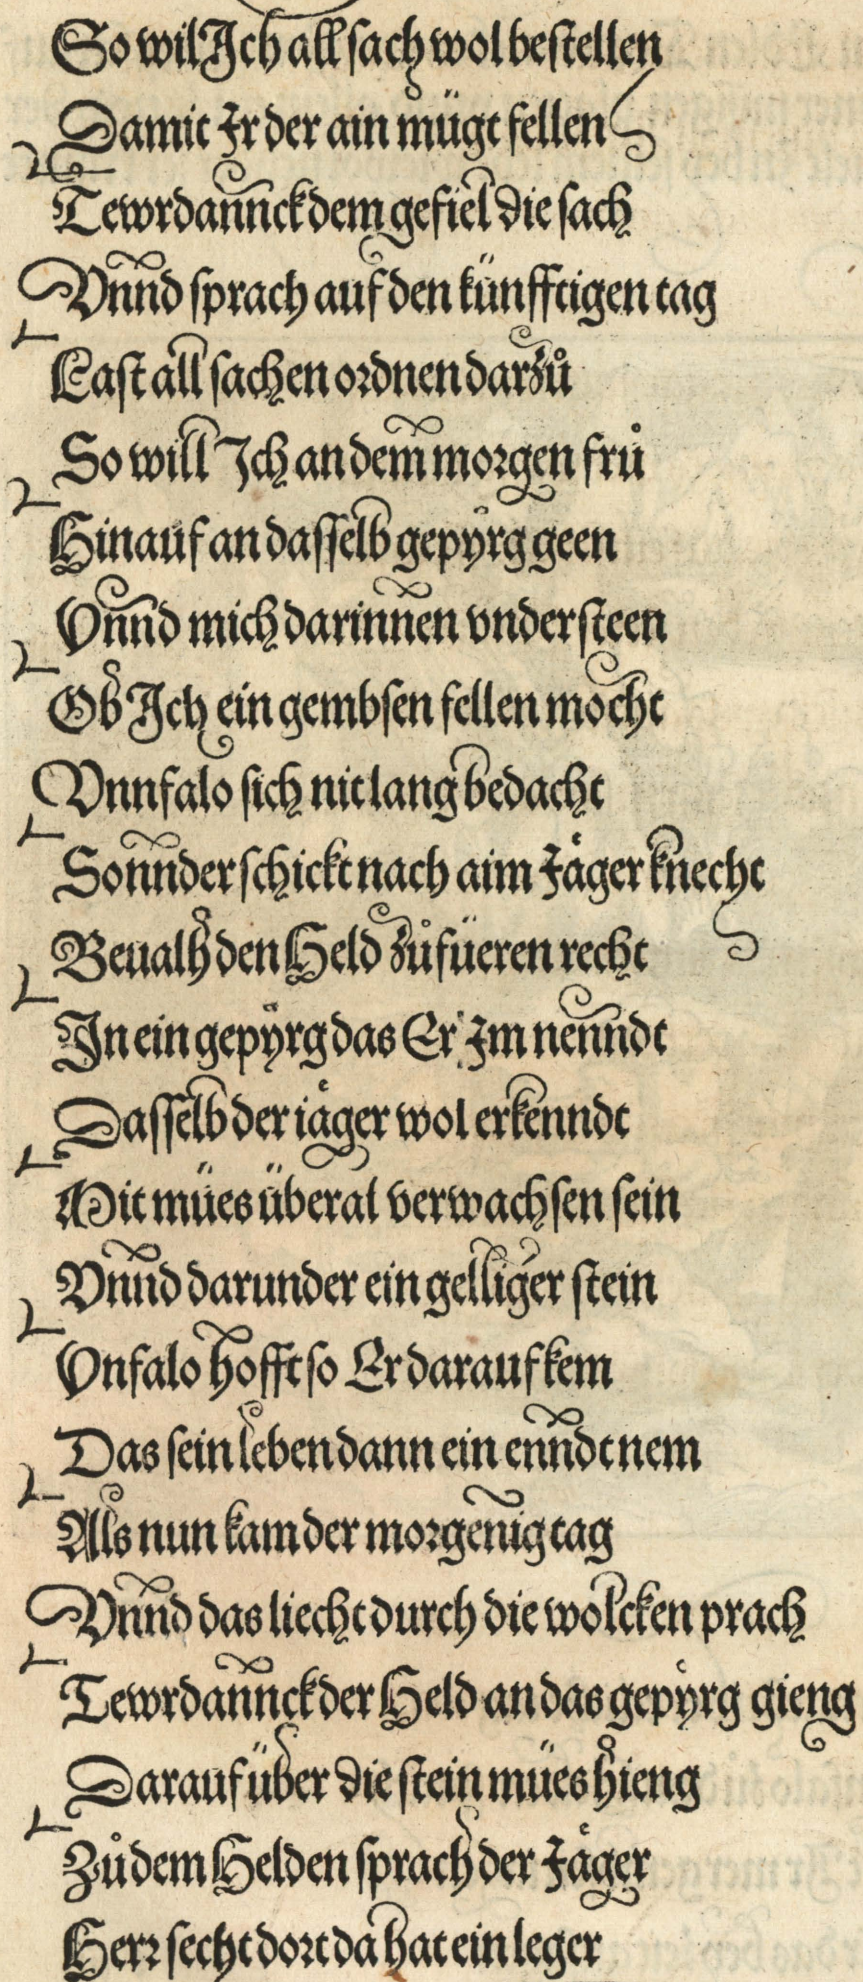 So wil Ich all sach wol bestellen
Damit Ir der ain mügt fellen
Tewrdannck dem gefiel die sach
Vnnd sprach auf den künfftigen tag
Last all sachen ordnen darzů
So will Ich an dem morgen frů
Hinauf an dasselb gepyrg geen
Vnnd mich darinnen vndersteen
Ob Ich ein gembsen fellen mocht
Vnnfalo sich nit lang bedacht
Sonnder schickt nach aim Jäger knecht
Beualh den Held zů füeren recht
In ein gepÿrg das Er Im nenndt
Dasselb der iäger wol erkenndt
Mit mües überal verwachsen sein
Vnnd darunder ein gelliger stein
Vnfalo hofft so Er darauf kem
Das sein leben dann ein enndt nem
Als nun kam der morgenig tag
Vnnd das liecht durch die wolcken prach
Tewrdannck der Held an das gepyrg gieng
Darauf über die stein mües hieng
Zů dem Helden sprach der Jäger
Herr secht dort da hat ein leger